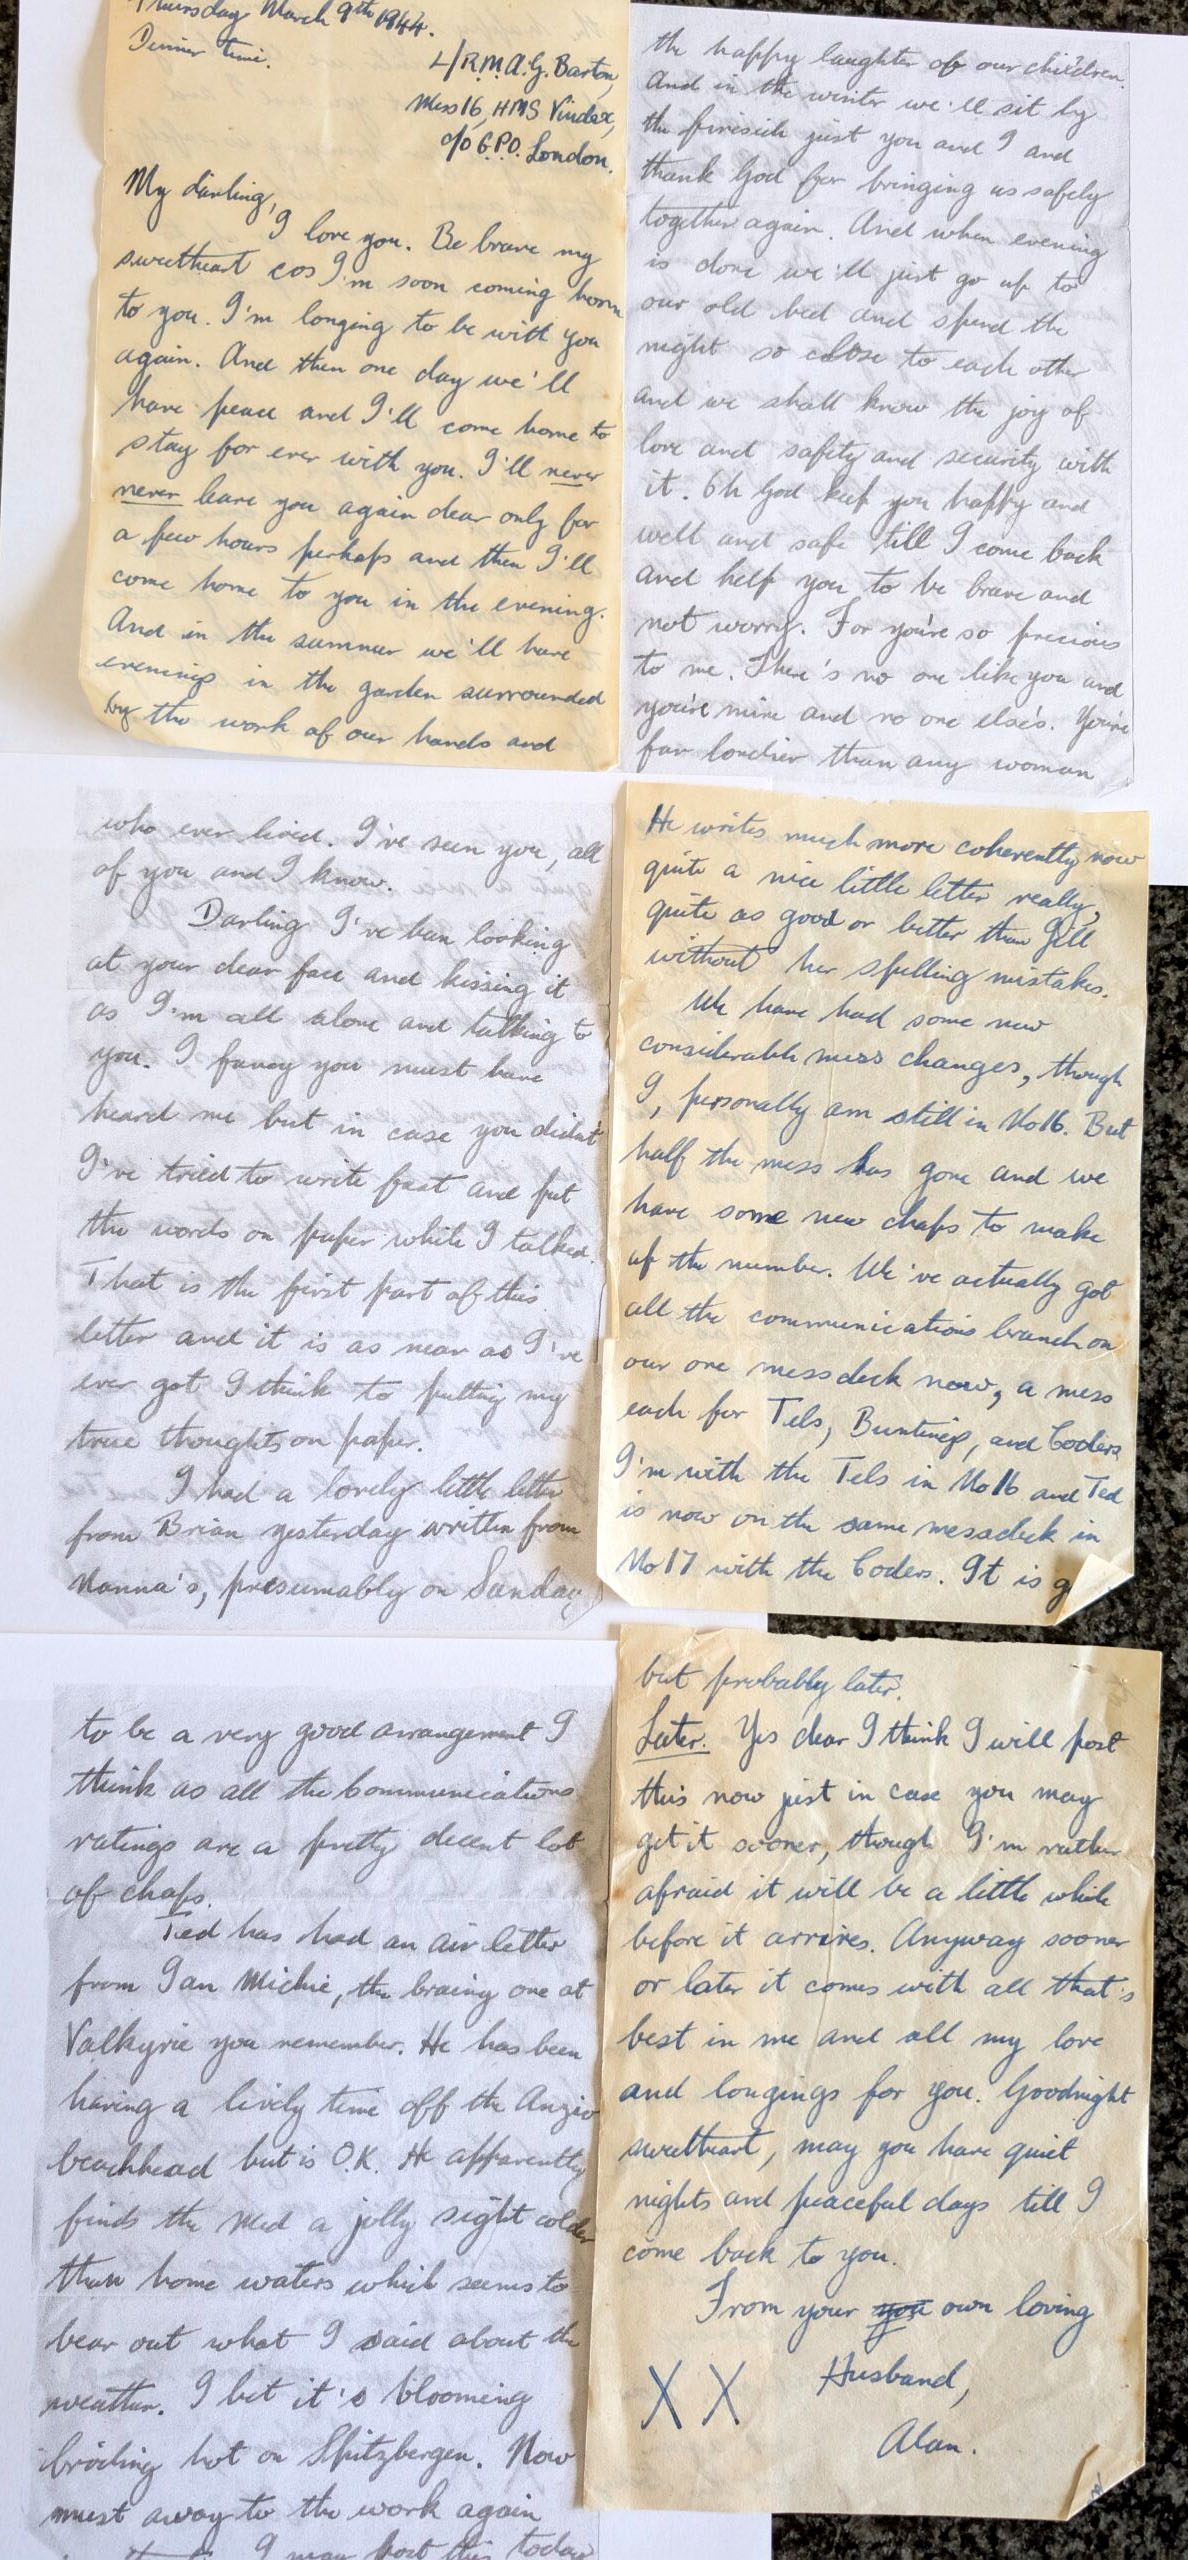 Thursday March 9th 1944.
Dinner time.
L/R.M. A.G. Barton,
Mess 16, HMS Vindex,
c/o G.P.O. London.
My darling,
I love you. Be brave my
sweetheart cos I'm soon coming home
to you. I'm longing to be with you
again. And then one day we'll
have peace and I'll come home to
stay for ever with you. I'll never
never leave you again dear only for
a few hours perhaps and then I'll
come home to you in the evening.
And in the summer we'll have
evenings in the garden surrounded
by the work of our hands and
the happy laughter of our children.
And in the winter we'll sit by
the fireside just you and I and
thank God for bringing us safely
together again. And when evening
is done we'll just go up to
our old bed and spend the
night so close to each other
and we shall know the joy of
love and safety and security with
it. Oh God keep you happy and
well and safe till I come back
and help you to be brave and
not worry. For you're so precious
to me. There's no one like you and
you're mine and no one else's. You're
far lovelier than any woman
who ever lived. I've seen you, all
of you and I know.
Darling I've been looking
at your dear face and kissing it
as I'm all alone and talking to
you. I fancy you must have
heard me but in case you didn't
I've tried to write fast and put
the words on paper while I talked.
That is the first part of this
letter and it is as near as I've
ever got I think to putting my
true thoughts on paper.
I had a lovely little letter
from Brian yesterday written from
Nanna's, presumably on Sunday
He writes much more coherently now
quite a nice little letter really,
quite as good or better than Jill
without her spelling mistakes.
We have had some new
considerable mess changes, though
I, personally am still in No16. But
half the mess has gone and we
have some new chaps to make
up the number. We've actually got
all the communications branch on
our one messdeck now, a mess
each for Tels, Buntings, and Coders
I'm with the Tels in No16 and Ted
is now on the same messdeck in
No17 with the Coders. It is g
to be a very good arrangement I
think as all the Communications
ratings are a pretty decent lot
of chaps.
Ted has had an air letter
from Ian Michie, the brainy one at
Valkyrie you remember. He has been
having a lively time off the Anzio
beachhead but is O.K. He apparently
finds the Med a jolly sight colder
than home waters which seems to
bear out what I said about the
weather. I bet it's blooming
broiling hot on Spitzbergen. Now
must away to the work again
I may post this today
but probably later.
Later. Yes dear I think I will post
this now just in case you may
get it sooner, though I'm rather
afraid it will be a little while
before it arrives. Anyway sooner
or later it comes with all that's
best in me and all my love
and longings for you. Goodnight
sweetheart, may you have quiet
nights and peaceful days till I
come back to you.
From your you own loving
Husband,
X X
Alan.